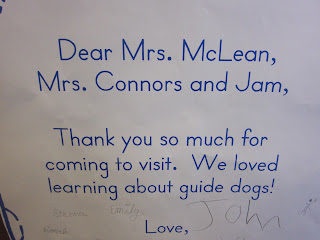 Dear Mrs. McLean,
Mrs. Connors and Jam,
Thank you so much for
coming to visit. We loved
learning about guide dogs!
Emily
John
Love,